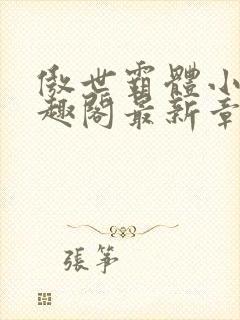 傲世霸體小
趣閣最新章
張筝